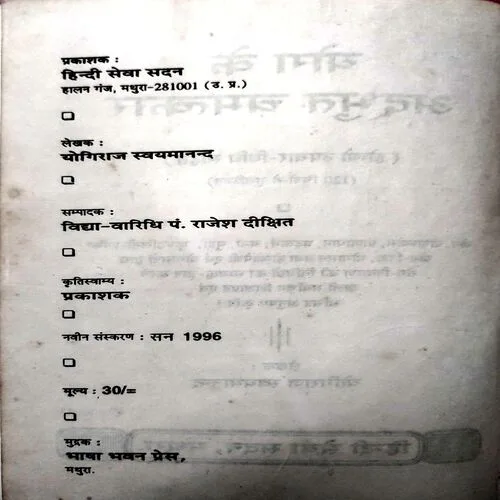 प्रकाशक :
हिन्दी सेवा सदन
हालन गंज, मथुरा-281001 (उ. प्र.)
लेखक :
योगिराज स्वयमानन्द
सम्पादक :
विद्या-वारिधि पं. राजेश दीक्षित
कृतिस्वाम्य :
प्रकाशक
नवीन संस्करण : सन 1996
मूल्य : 30/=
मुद्रक :
भाषा भवन प्रेस,
मथुरा.